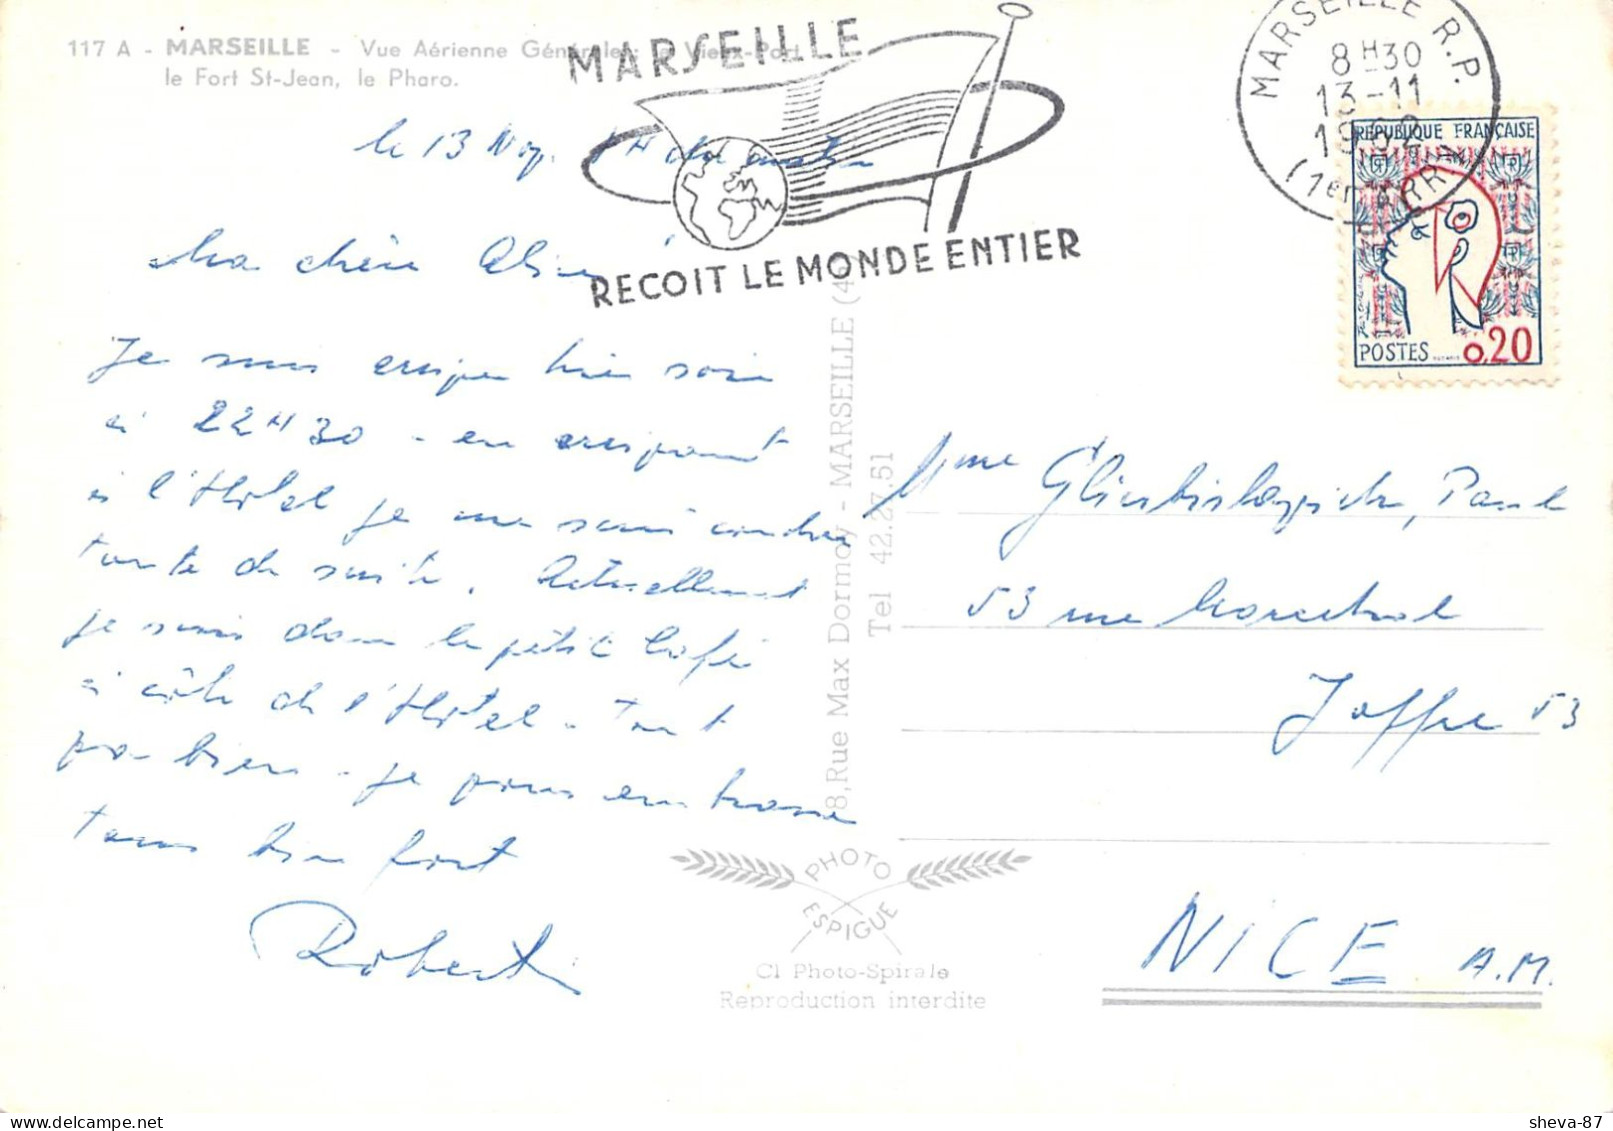 117 A - MARSEILLE - Vue Aérienne Générale: le Vieux-Port
le Fort St-Jean, le Pharo.
MARSEILLE
RECOIT LE MONDE ENTIER
MARSEILLE R.P.
8H30
13-11
1962
(1er ARRT)
RÉPUBLIQUE FRANÇAISE
POSTES 0,20
le 13 Nov. 
Ma chère
Je suis arrivé hier soir
à 22H30 - en arrivant
à l'Hôtel je me suis couché
toute de suite. Actuellement
je suis dans le petit Café
à côté de l'Hôtel - tout
va bien - je vous embrasse
tous bien fort
Robert
8, Rue Max Dormoy - MARSEILLE (4e)
Tel 42.27.51
Mme Paule
53 rue Marechal
Joffre 53
NICE A.M.
PHOTO
ESPIGUE
Cl Photo-Spirale
Reproduction interdite
sheva-87